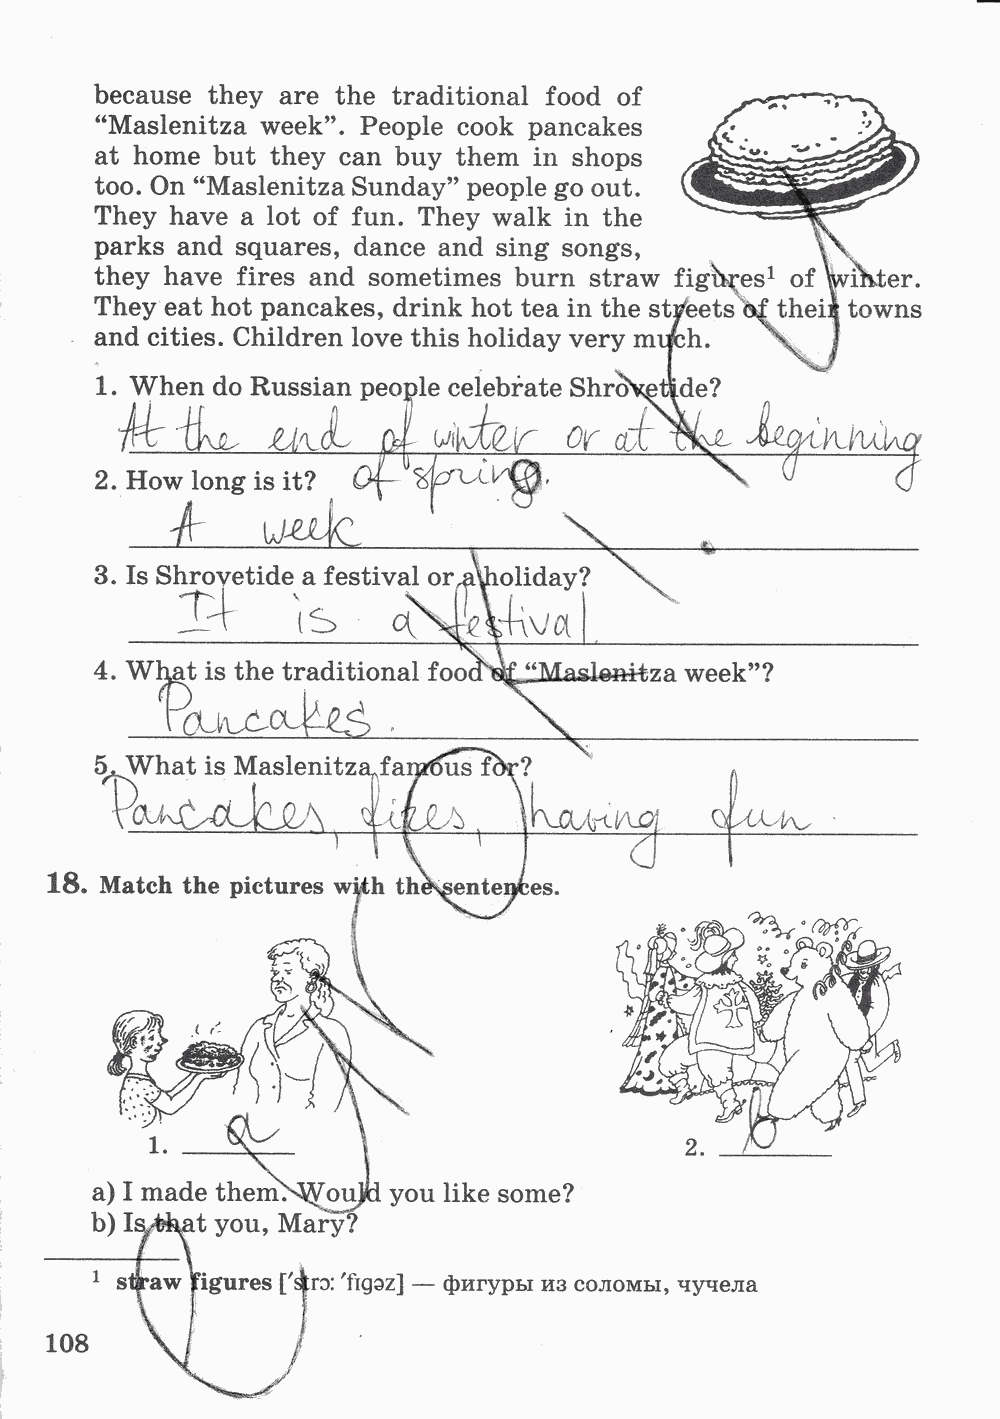 because they are the traditional food of
“Maslenitza week”. People cook pancakes
at home but they can buy them in shops
too. On “Maslenitza Sunday” people go out.
They have a lot of fun. They walk in the
parks and squares, dance and sing songs,
they have fires and sometimes burn straw figures¹ of winter.
They eat hot pancakes, drink hot tea in the streets of their towns
and cities. Children love this holiday very much.
1. When do Russian people celebrate Shrovetide?
At the end of winter or at the beginning
of spring.
2. How long is it?
A week
3. Is Shrovetide a festival or a holiday?
It is a festival.
4. What is the traditional food of “Maslenitza week”?
Pancakes.
5. What is Maslenitza famous for?
Pancakes, fires, having fun.
18. Match the pictures with the sentences.
1. a
2. b
a) I made them. Would you like some?
b) Is that you, Mary?
¹ straw figures [ˈstrɔː ˈfɪɡəz] — фигуры из соломы, чучела
108